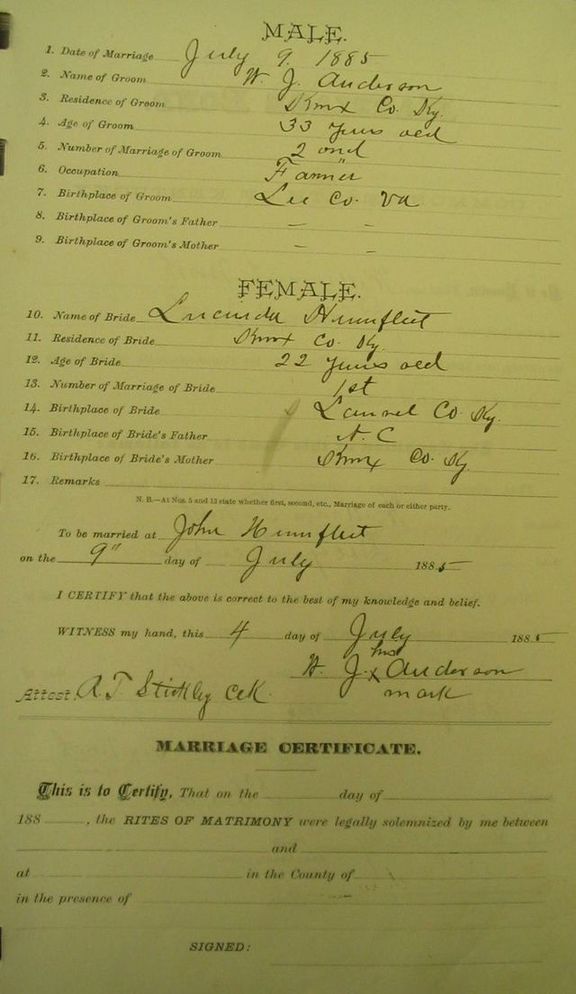 MALE.
1. Date of Marriage July 9 1885
2. Name of Groom W. J. Anderson
3. Residence of Groom Knox Co. Ky.
4. Age of Groom 33 years old
5. Number of Marriage of Groom 2 ond
6. Occupation Farmer
7. Birthplace of Groom Lee Co. Va
8. Birthplace of Groom's Father – –
9. Birthplace of Groom's Mother – –
FEMALE.
10. Name of Bride Lucinda Hunnfleet
11. Residence of Bride Knox Co Ky
12. Age of Bride 22 years old
13. Number of Marriage of Bride 1st
14. Birthplace of Bride Laurel Co. Ky.
15. Birthplace of Bride's Father N. C
16. Birthplace of Bride's Mother Knox Co. Ky
17. Remarks
N. B.—At Nos. 5 and 13 state whether first, second, etc., Marriage of each or either party.
To be married at John Hunnfleet
on the 9" day of July 1885
I CERTIFY that the above is correct to the best of my knowledge and belief.
WITNESS my hand, this 4 day of July 1885
his
W. J. x Anderson
mark
Attest: A. T. Stickley Clk.
MARRIAGE CERTIFICATE.
This is to Certify, That on the day of
188 , the RITES OF MATRIMONY were legally solemnized by me between
and
at in the County of
in the presence of
SIGNED: